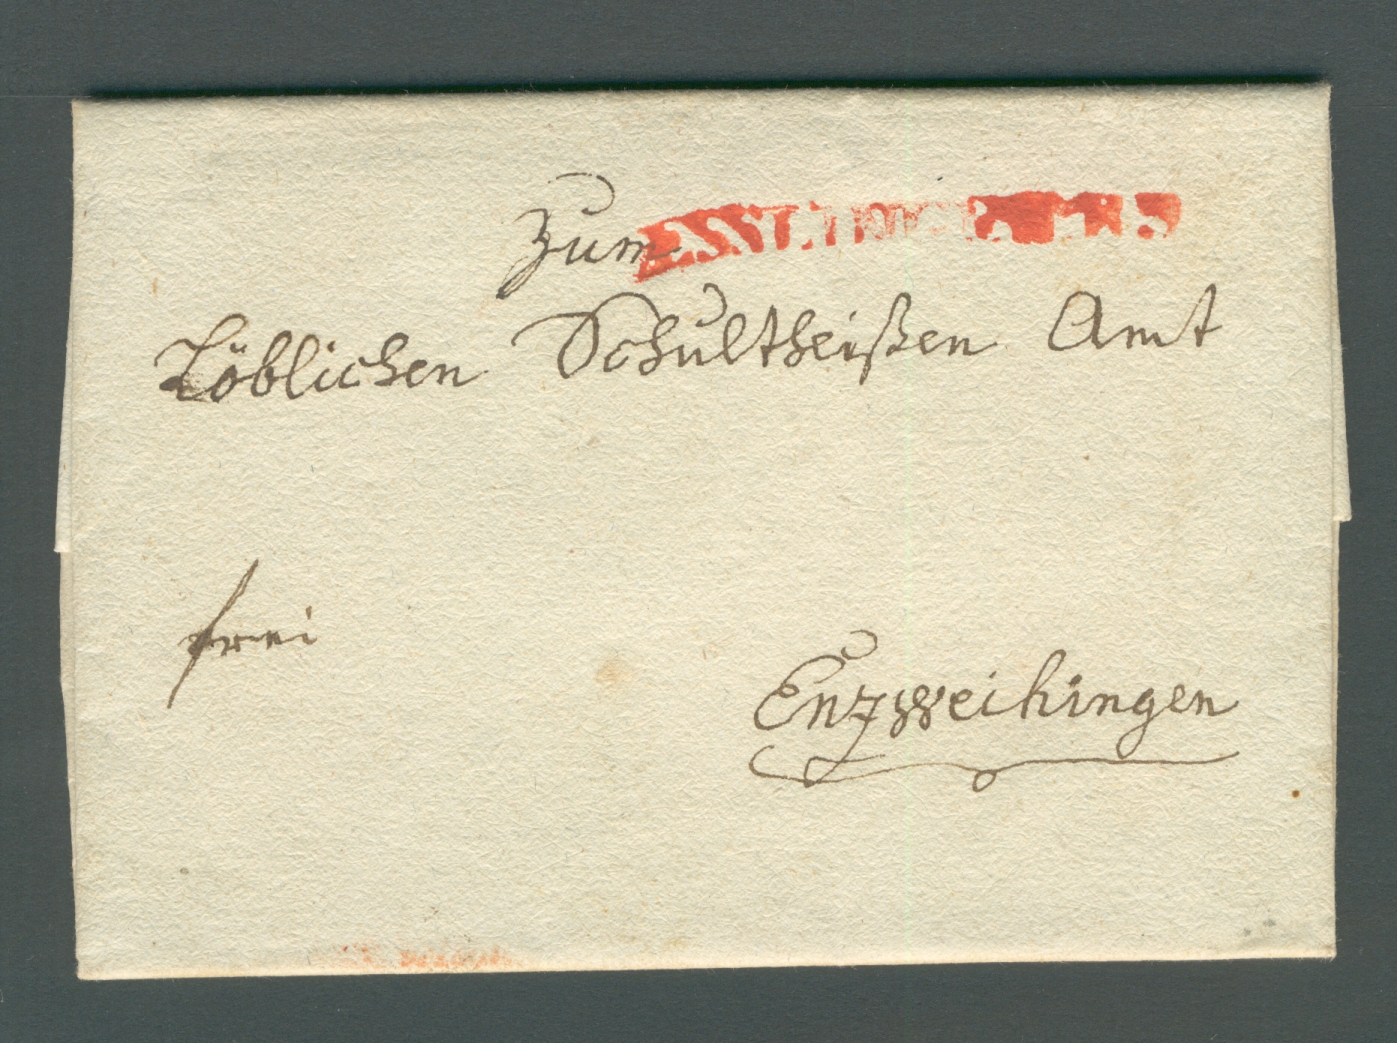 Zum
ESSLINGEN
Löblichen Schultheißen Amt
frei
Enzweihingen